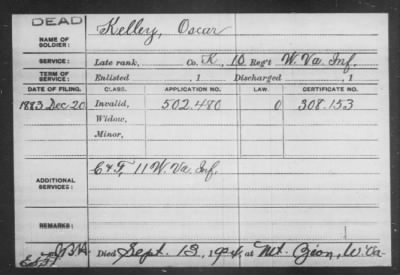 DEAD
NAME OF SOLDIER: Kelley, Oscar
SERVICE: Late rank, Co. K, 10 Reg't W. Va. Inf.
TERM OF SERVICE: Enlisted , 1 Discharged , 1
DATE OF FILING. CLASS. APPLICATION NO. LAW. CERTIFICATE NO.
1883 Dec 20 Invalid, 502.480 0 308.153
Widow,
Minor,
ADDITIONAL SERVICES: C & F, 11 W. Va. Inf.
REMARKS:
Died Sept. 13, 1904, at Mt. Zion, W. Va-